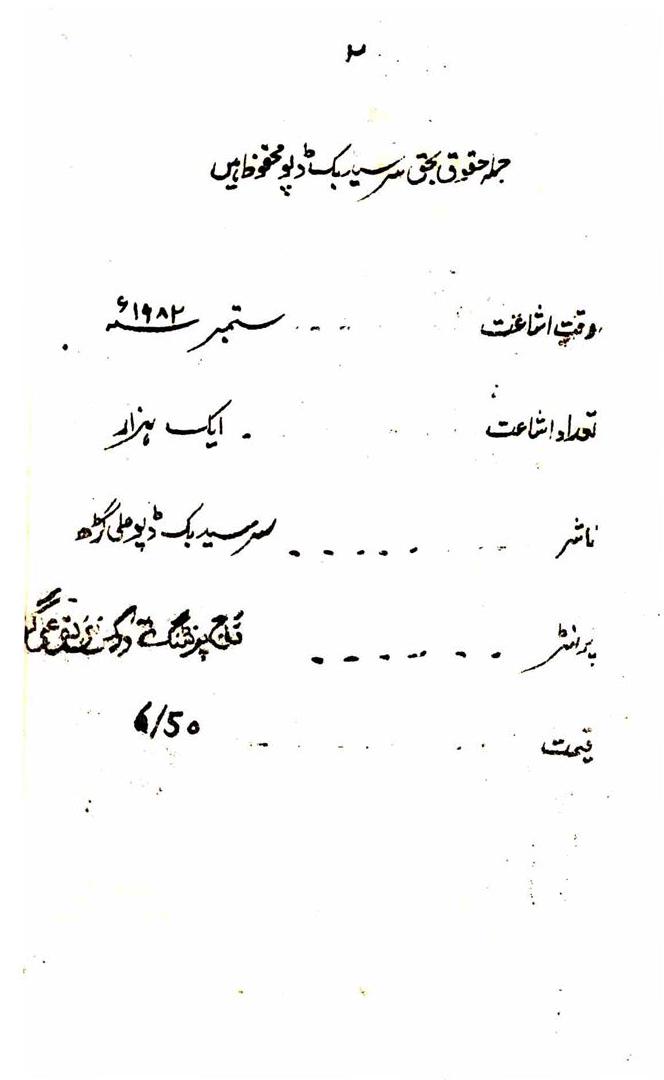 ۲
جملہ حقوق بحق سر سید بک ڈپو محفوظ ہیں
وقتِ اشاعت ستمبر ۱۹۸۲ء
تعداد اشاعت ایک ہزار
ناشر سر سید بک ڈپو علی گڑھ
پرانٹر پرنٹنگ ورکس
قیمت 6/50